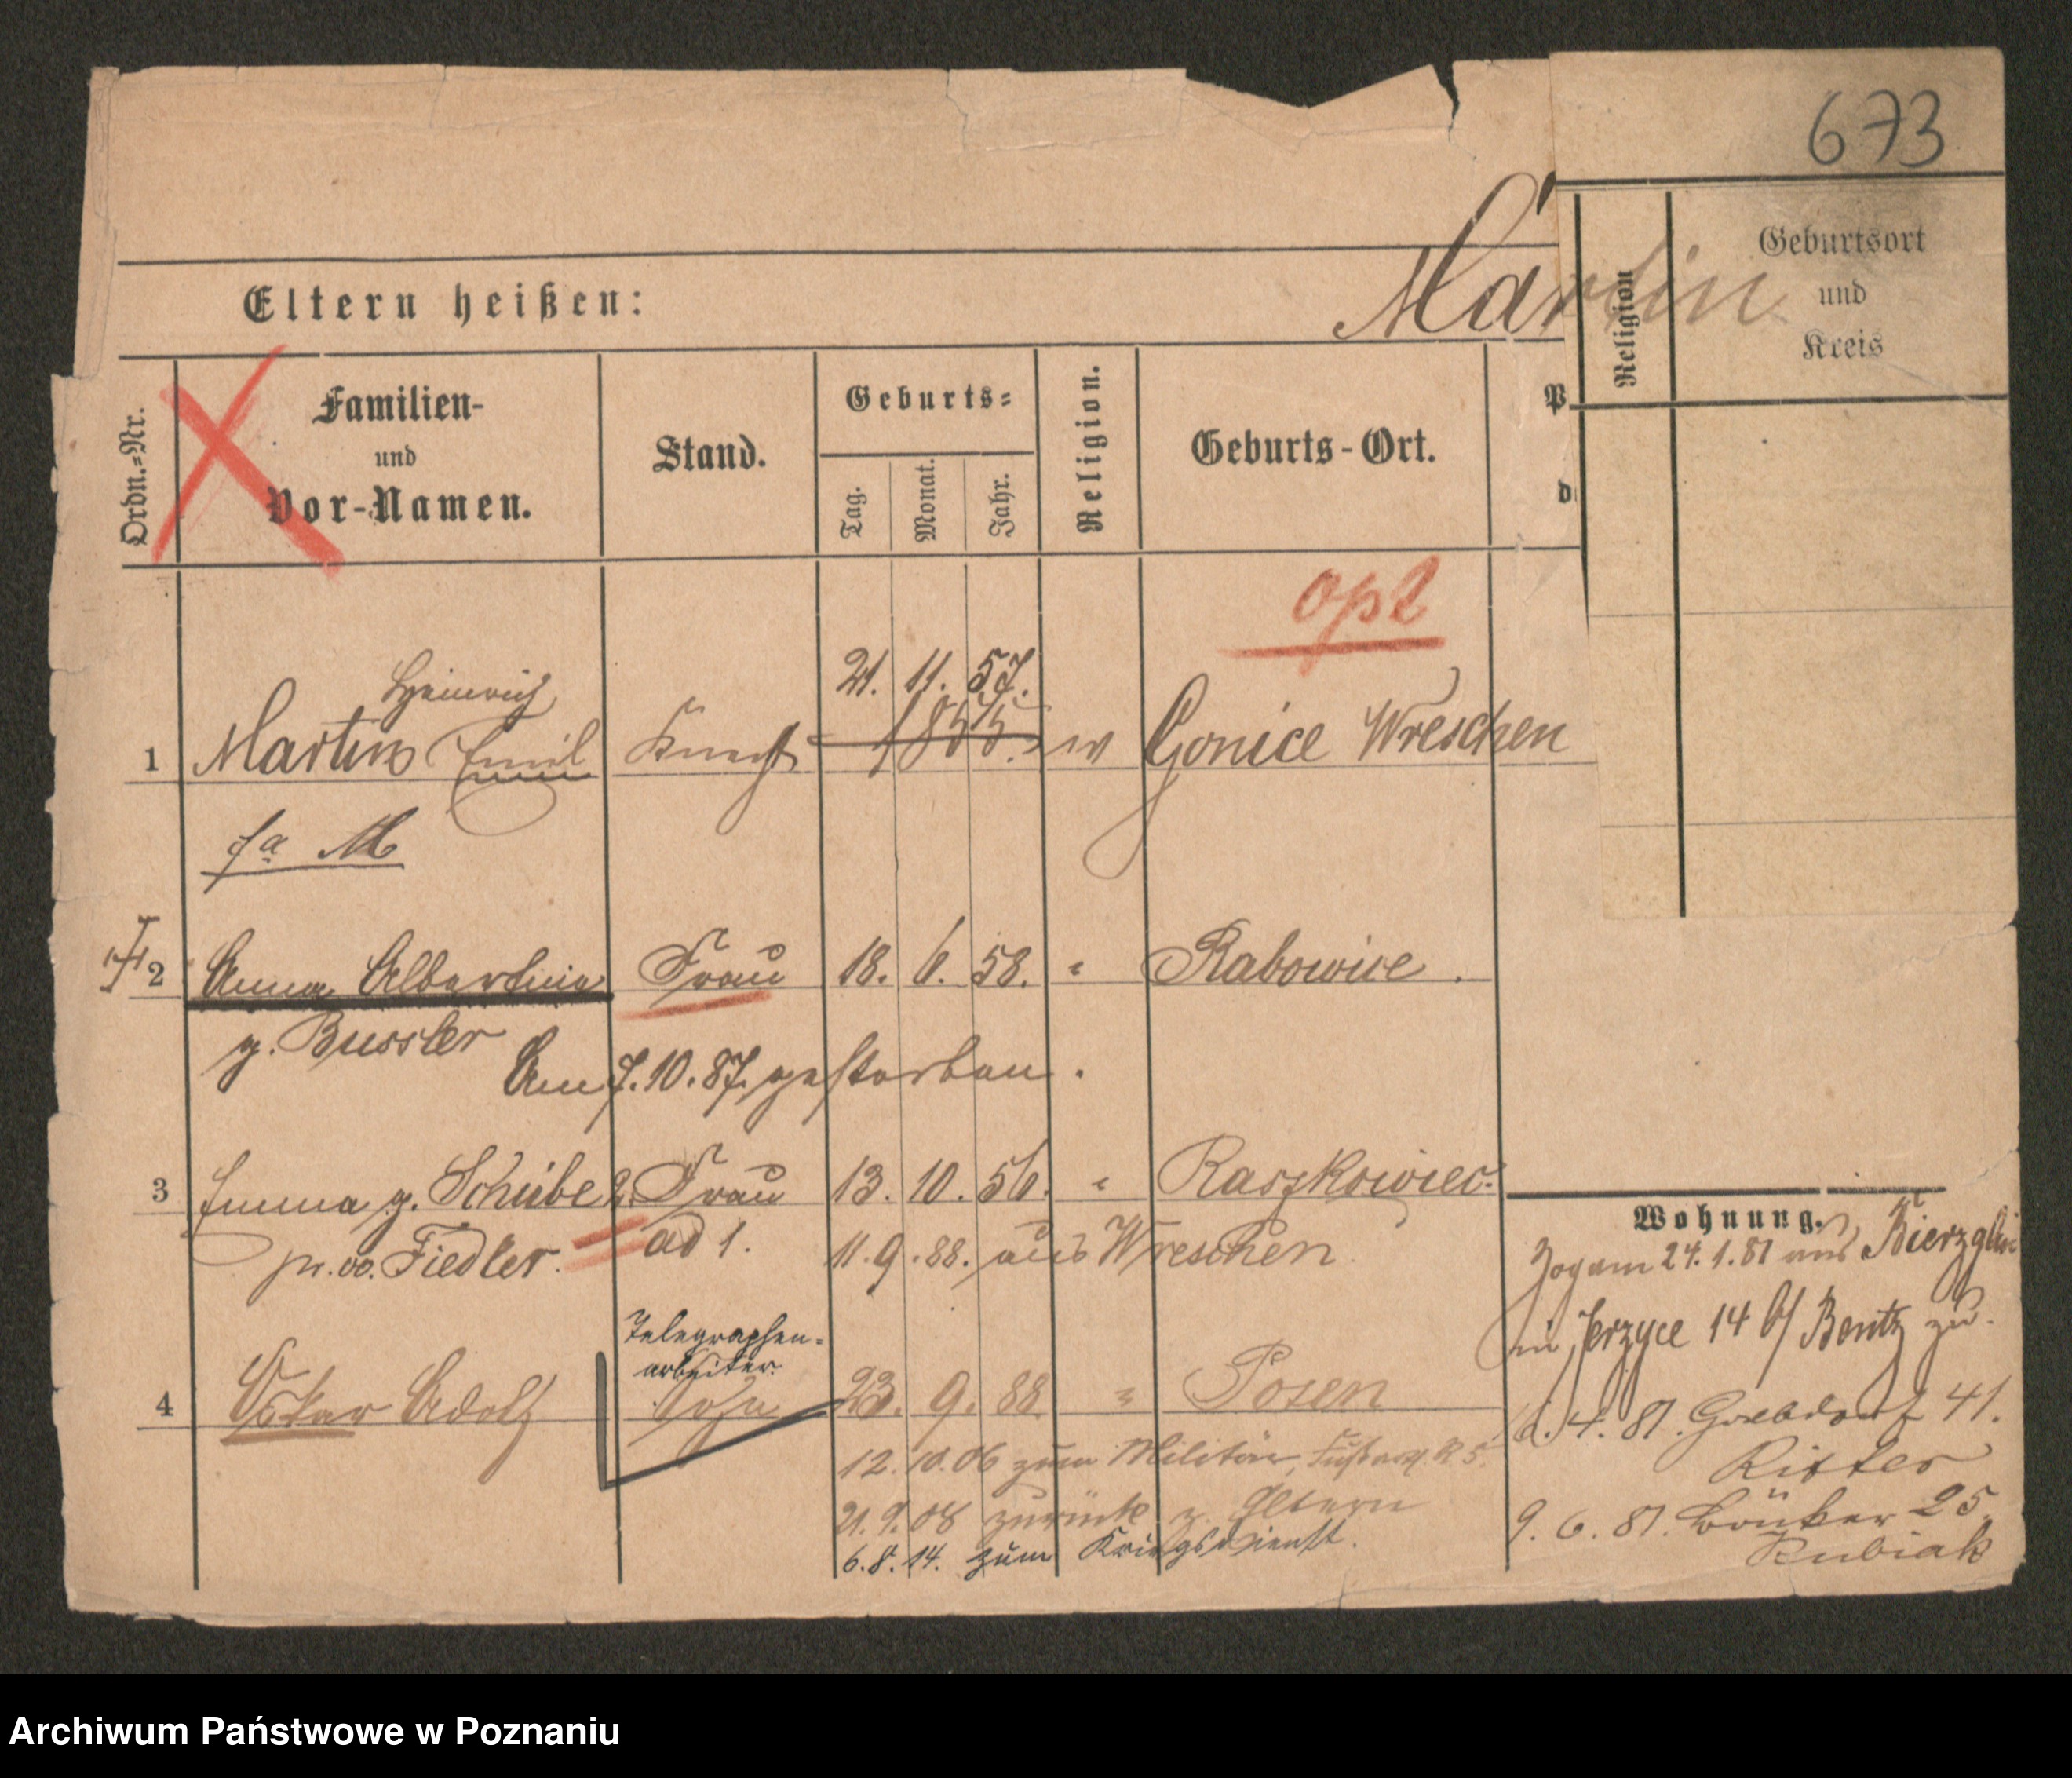 673
Martin
Eltern heißen:
Religion
Geburtsort
und
Kreis
Ordn.-Nr.
Familien-
und
Vor-Namen.
Stand.
Geburts-
Tag.
Monat.
Jahr.
Religion.
Geburts-Ort.
P
d
opt
Heinrich
21. 11. 57.
1 Martin Emil Knecht 1855. w Gonice Wreschen
fa M
2 Anna Albertine Frau 18. 6. 58. " Rabowice.
g. Bussler
Am 7.10.87. gestorben.
3 Emma g. Schübe 2. Frau 13. 10. 56. " Raszkowiec.
pr. vo. Fiedler. ad 1. 11. 9. 88. aus Wreschen
Telegraphen-
arbeiter.
4 Oskar Adolf Sohn 23. 9. 88 " Posen
12. 10. 06 zum Militär,
21. 9. 08 zurück z. Eltern
6. 8. 14. zum Kriegsdienst.
Wohnung.
Zog am 24. 1. 81 aus
in Jerzyce 14 b/ Bentz zu.
4. 81. 41.
Ritter
9. 6. 81. 25.
Kubiak
Archiwum Państwowe w Poznaniu